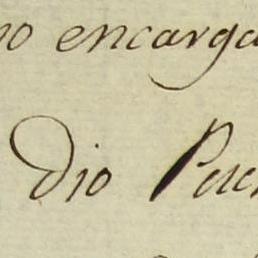 no encarga
dio Pen